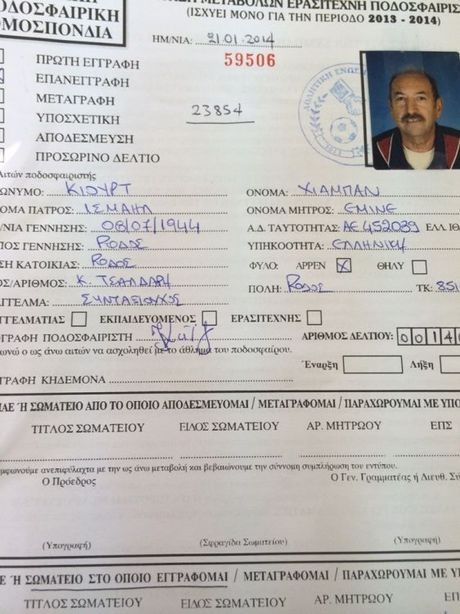 ΜΕΤΑΒΟΛΩΝ ΕΡΑΣΙΤΕΧΝΗ ΠΟΔΟΣΦΑΙΡΙΣ
ΠΟΔΟΣΦΑΙΡΙΚΗ (ΙΣΧΥΕΙ ΜΟΝΟ ΓΙΑ ΤΗΝ ΠΕΡΙΟΔΟ 2013 - 2014)
ΜΟΣΠΟΝΔΙΑ ΗΜ/ΝΙΑ: 21.01.2014
59506
ΠΡΩΤΗ ΕΓΓΡΑΦΗ
ΕΠΑΝΕΓΓΡΑΦΗ
ΜΕΤΑΓΡΑΦΗ
ΥΠΟΣΧΕΤΙΚΗ 23854
ΑΠΟΔΕΣΜΕΥΣΗ
ΠΡΟΣΩΡΙΝΟ ΔΕΛΤΙΟ
Αιτών ποδοσφαιριστής
ΩΝΥΜΟ: ΚΙΟΥΡΤ ΟΝΟΜΑ: ΧΙΑΜΠΑΝ
ΟΜΑ ΠΑΤΡΟΣ: ΙΣΜΑΗΛ ΟΝΟΜΑ ΜΗΤΡΟΣ: ΕΜΙΝΕ
/ΝΙΑ ΓΕΝΝΗΣΗΣ: 08/07/1944 Α.Δ. ΤΑΥΤΟΤΗΤΑΣ: ΑΕ 452089 ΕΛΛ. ΙΘ
ΠΟΣ ΓΕΝΝΗΣΗΣ: ΡΟΔΟΣ ΥΠΗΚΟΟΤΗΤΑ: ΕΛΛΗΝΙΚΗ
ΣΗ ΚΑΤΟΙΚΙΑΣ: ΡΟΔΟΣ ΦΥΛΟ: ΑΡΡΕΝ X ΘΗΛΥ
ΟΣ/ΑΡΙΘΜΟΣ: Κ. ΤΣΑΛΔΑΡΗ ΠΟΛΗ: ΡΟΔΟΣ ΤΚ: 851
ΑΓΓΕΛΜΑ: ΣΥΝΤΑΞΙΟΥΧΟΣ
ΓΕΛΜΑΤΙΑΣ ΕΚΠΑΙΔΕΥΟΜΕΝΟΣ ΕΡΑΣΙΤΕΧΝΗΣ
ΟΓΡΑΦΗ ΠΟΔΟΣΦΑΙΡΙΣΤΗ ΑΡΙΘΜΟΣ ΔΕΛΤΙΟΥ: 0014
ωνώ ο ως άνω αιτών να ασχοληθεί με το άθλημα του ποδοσφαίρου.
Έναρξη Λήξη
ΓΡΑΦΗ ΚΗΔΕΜΟΝΑ
ΑΕ Ή ΣΩΜΑΤΕΙΟ ΑΠΟ ΤΟ ΟΠΟΙΟ ΑΠΟΔΕΣΜΕΥΟΜΑΙ / ΜΕΤΑΓΡΑΦΟΜΑΙ / ΠΑΡΑΧΩΡΟΥΜΑΙ ΜΕ ΥΠΟ
ΤΙΤΛΟΣ ΣΩΜΑΤΕΙΟΥ ΕΙΔΟΣ ΣΩΜΑΤΕΙΟΥ ΑΡ. ΜΗΤΡΩΟΥ ΕΠΣ
μφωνούμε ανεπιφύλαχτα με την ως άνω μεταβολή και βεβαιώνουμε την σύννομη συμπλήρωση του εντύπου.
Ο Πρόεδρος Ο Γεν. Γραμματέας ή Διευθ. Σύ
(Υπογραφή) (Σφραγίδα Σωματείου) (Υπογραφή)
ΑΕ Ή ΣΩΜΑΤΕΙΟ ΣΤΟ ΟΠΟΙΟ ΕΓΓΡΑΦΟΜΑΙ / ΜΕΤΑΓΡΑΦΟΜΑΙ / ΠΑΡΑΧΩΡΟΥΜΑΙ ΜΕ Υ
ΤΙΤΛΟΣ ΣΩΜΑΤΕΙΟΥ ΕΙΔΟΣ ΣΩΜΑΤΕΙΟΥ ΑΡ. ΜΗΤΡΩΟΥ ΕΠΣ